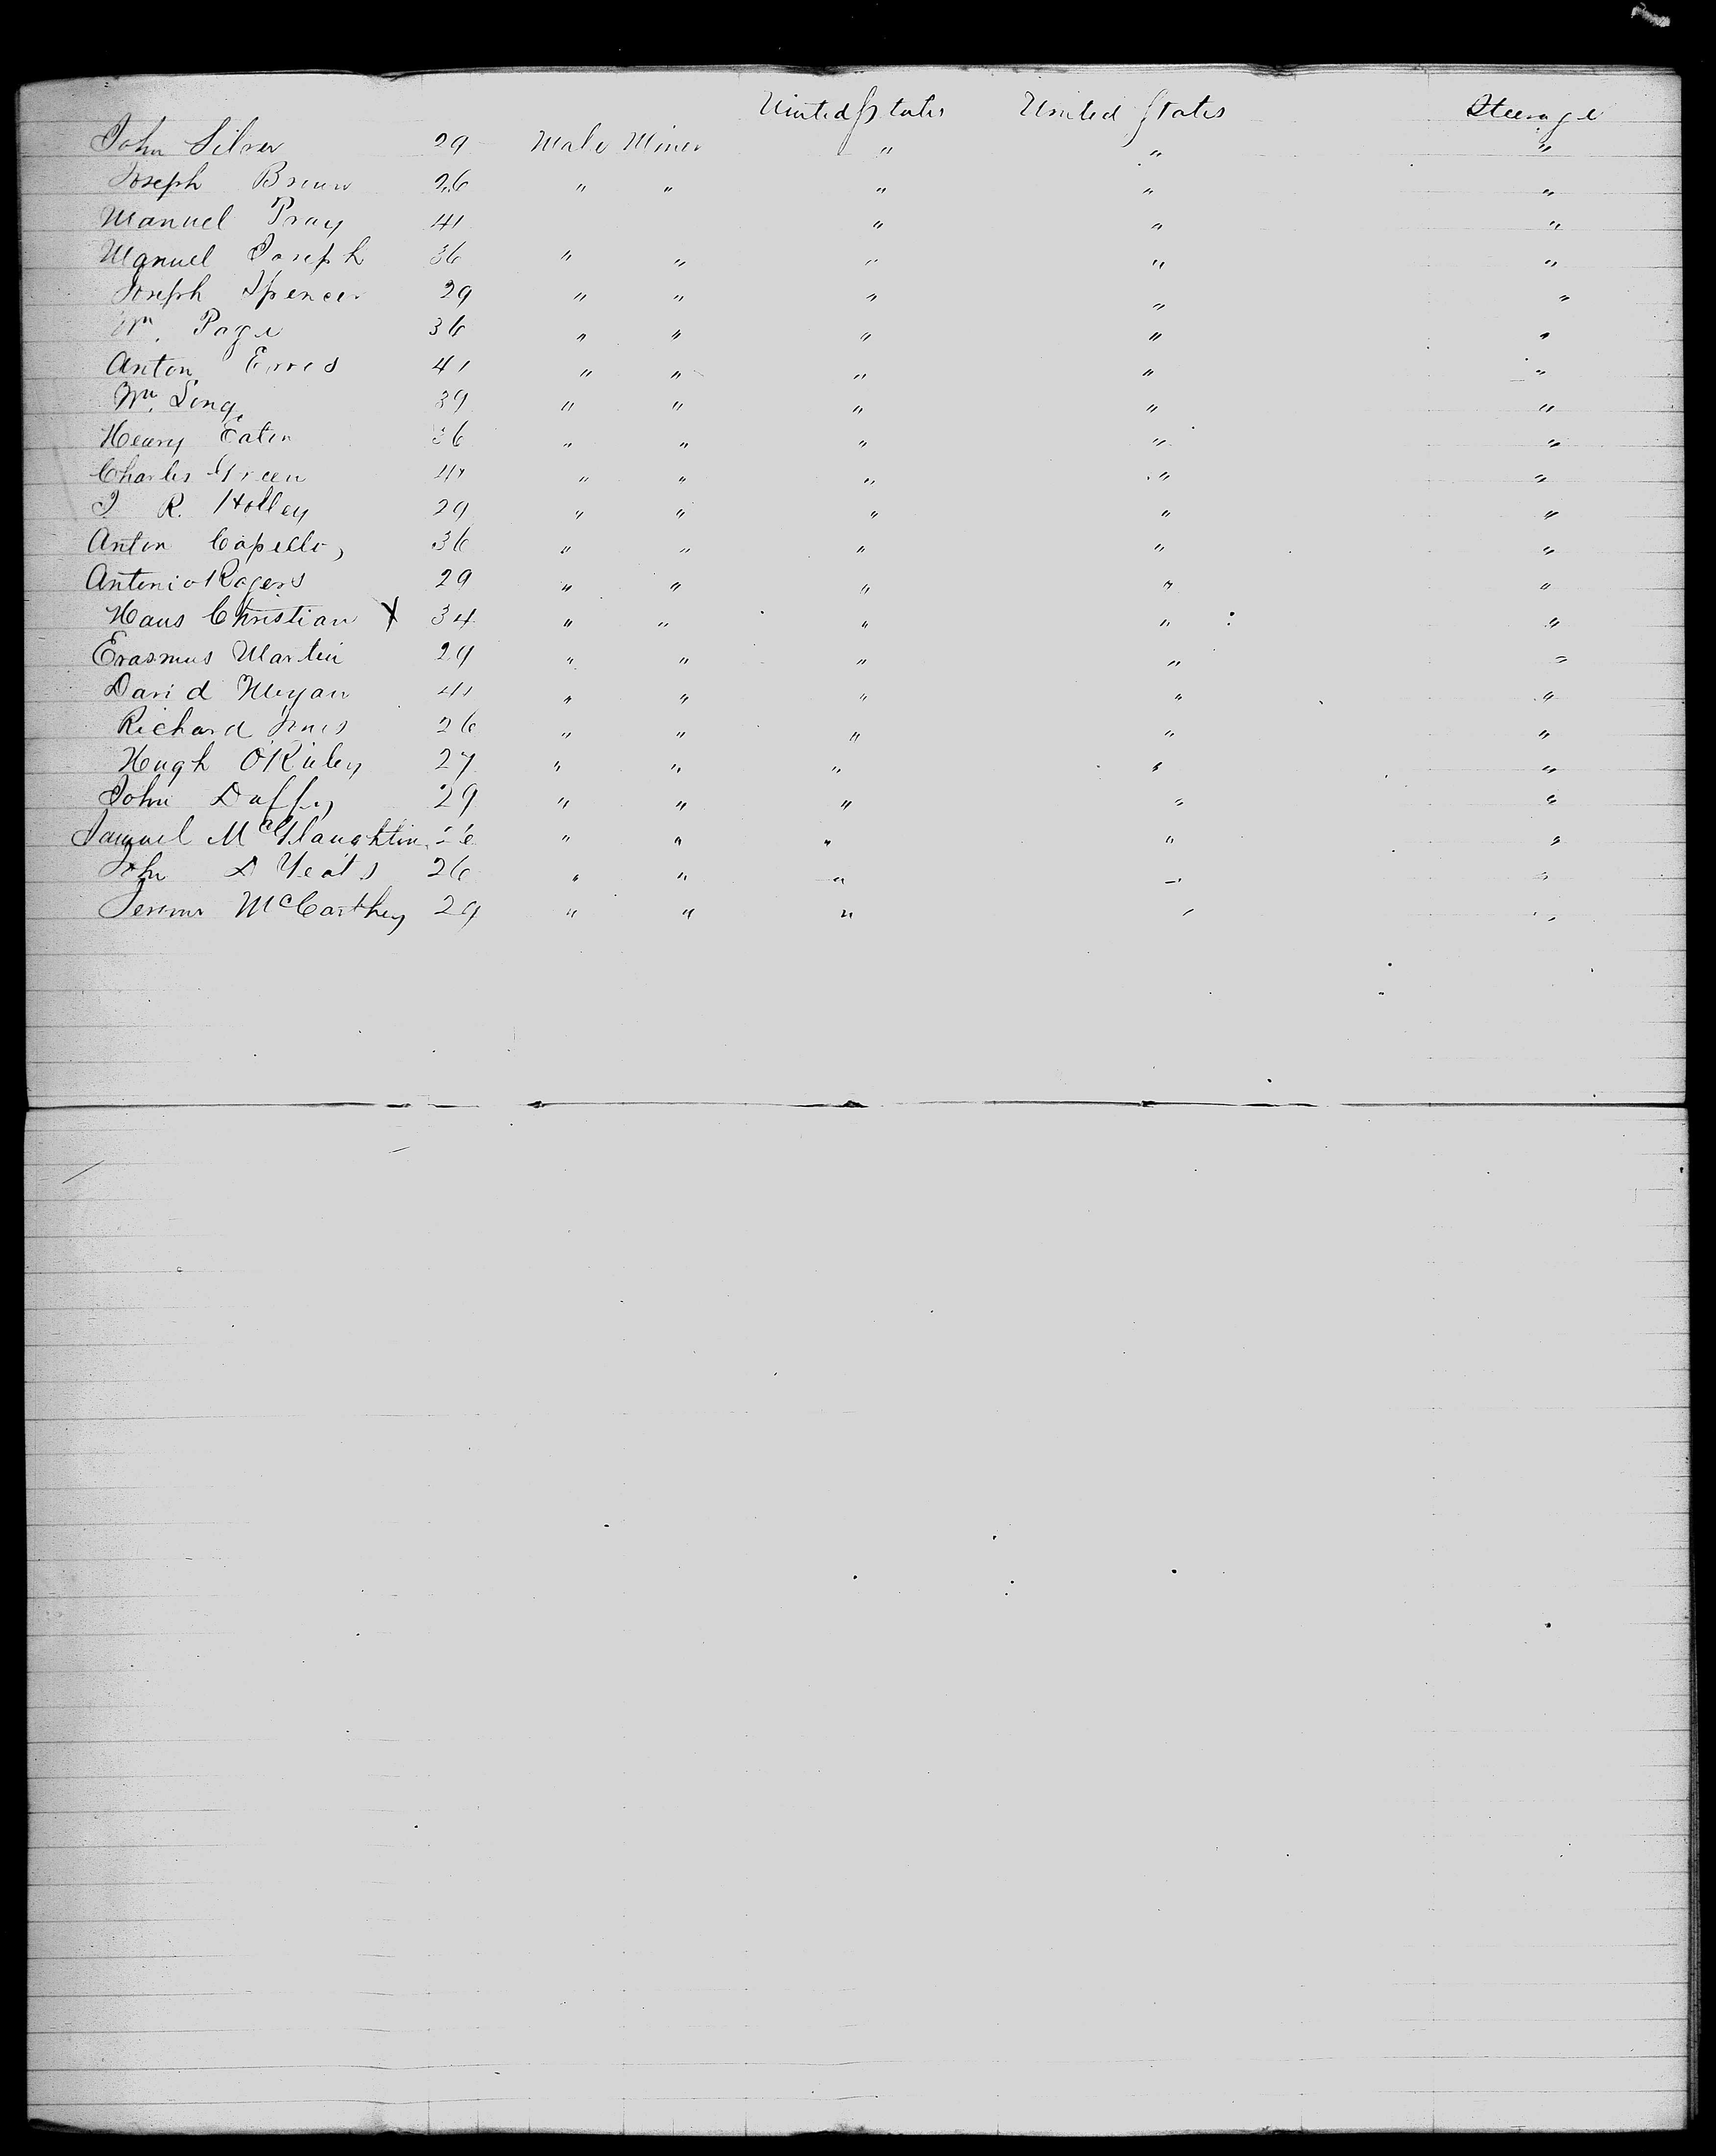 United States United States Steerage
John Silver 29 Male Miner " " "
Joseph Brown 26 " " " " "
Manuel Pray 41 " " "
Manuel Joseph 36 " " " " "
Joseph Spencer 29 " " " " "
Wm. Page 36 " " " " "
Anton 41 " " " " "
Wm. Long 39 " " " " "
Henry Eaton 36 " " " " "
Charles Green " " " " "
R. Holley 29 " " " " "
Anton Capello, 36 " " " " "
Antonio Rogers 29 " " " " "
Hans Christian X 34 " " " " "
Erasmus Martin 29 " " " " "
David 41 " " " " "
Richard Jones 26 " " " " "
Hugh 27 " " " " "
John Duffy 29 " " " " "
Samuel McGlaughlin " " " " "
John D Yeats 26 " " " " "
McCarthey 29 " " " " "